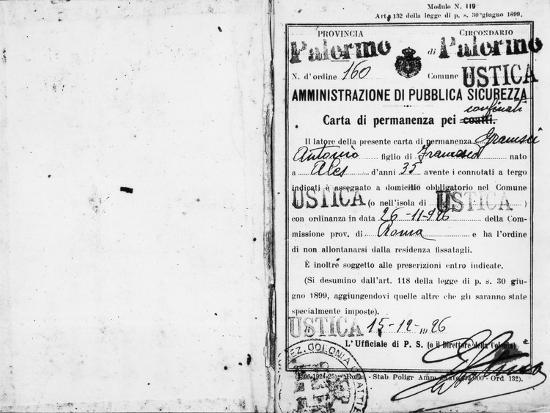 Modulo N. 119
Art. 132 della legge di p. s. 30 giugno 1899.
PROVINCIA CIRCONDARIO
Palermo di Palermo
N. d'ordine 160 Comune di USTICA
AMMINISTRAZIONE DI PUBBLICA SICUREZZA
confinati
Carta di permanenza pei coatti.
Il latore della presente carta di permanenza Gramsci
Antonio figlio di Francesco nato
a Ales d'anni 35 avente i connotati a tergo
indicati è assegnato a domicilio obbligatorio nel Comune
USTICA (o nell'isola di USTICA)
con ordinanza in data 26-11-926 della Com-
missione prov. di Roma e ha l'ordine
di non allontanarsi dalla residenza fissatagli.
È inoltre soggetto alle prescrizioni entro indicate.
(Si desumino dall'art. 118 della legge di p. s. 30 giu-
gno 1899, aggiungendovi quelle altre che gli saranno state
specialmente imposte).
USTICA 15-12-926
L'Ufficiale di P. S. (o il Direttore della Colonia)
COLONIA COATTI
Stab. Poligr. Amm. Ord. 132).